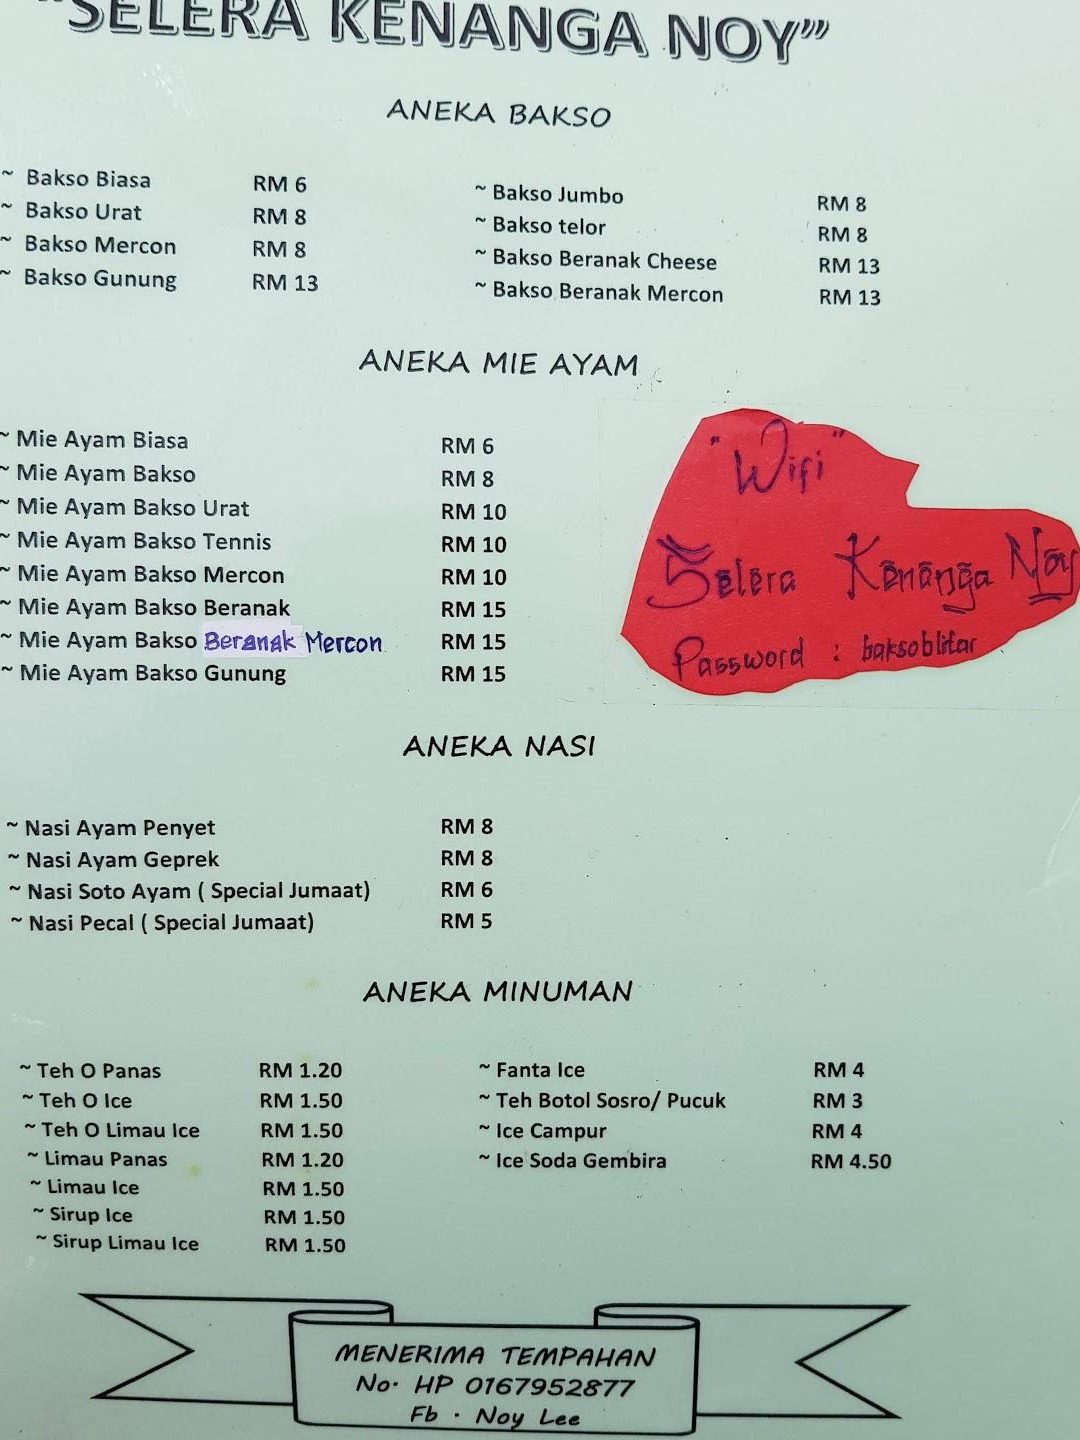 "SELERA KENANGA NOY"
ANEKA BAKSO
~ Bakso Biasa RM 6
~ Bakso Urat RM 8
~ Bakso Mercon RM 8
~ Bakso Gunung RM 13
~ Bakso Jumbo RM 8
~ Bakso telor RM 8
~ Bakso Beranak Cheese RM 13
~ Bakso Beranak Mercon RM 13
ANEKA MIE AYAM
~ Mie Ayam Biasa RM 6
~ Mie Ayam Bakso RM 8
~ Mie Ayam Bakso Urat RM 10
~ Mie Ayam Bakso Tennis RM 10
~ Mie Ayam Bakso Mercon RM 10
~ Mie Ayam Bakso Beranak RM 15
~ Mie Ayam Bakso Beranak Mercon RM 15
~ Mie Ayam Bakso Gunung RM 15
"Wifi"
Selera Kenanga Noy
Password : baksoblitar
ANEKA NASI
~ Nasi Ayam Penyet RM 8
~ Nasi Ayam Geprek RM 8
~ Nasi Soto Ayam ( Special Jumaat) RM 6
~ Nasi Pecal ( Special Jumaat) RM 5
ANEKA MINUMAN
~ Teh O Panas RM 1.20
~ Teh O Ice RM 1.50
~ Teh O Limau Ice RM 1.50
~ Limau Panas RM 1.20
~ Limau Ice RM 1.50
~ Sirup Ice RM 1.50
~ Sirup Limau Ice RM 1.50
~ Fanta Ice RM 4
~ Teh Botol Sosro/ Pucuk RM 3
~ Ice Campur RM 4
~ Ice Soda Gembira RM 4.50
MENERIMA TEMPAHAN
No. HP 0167952877
Fb . Noy Lee